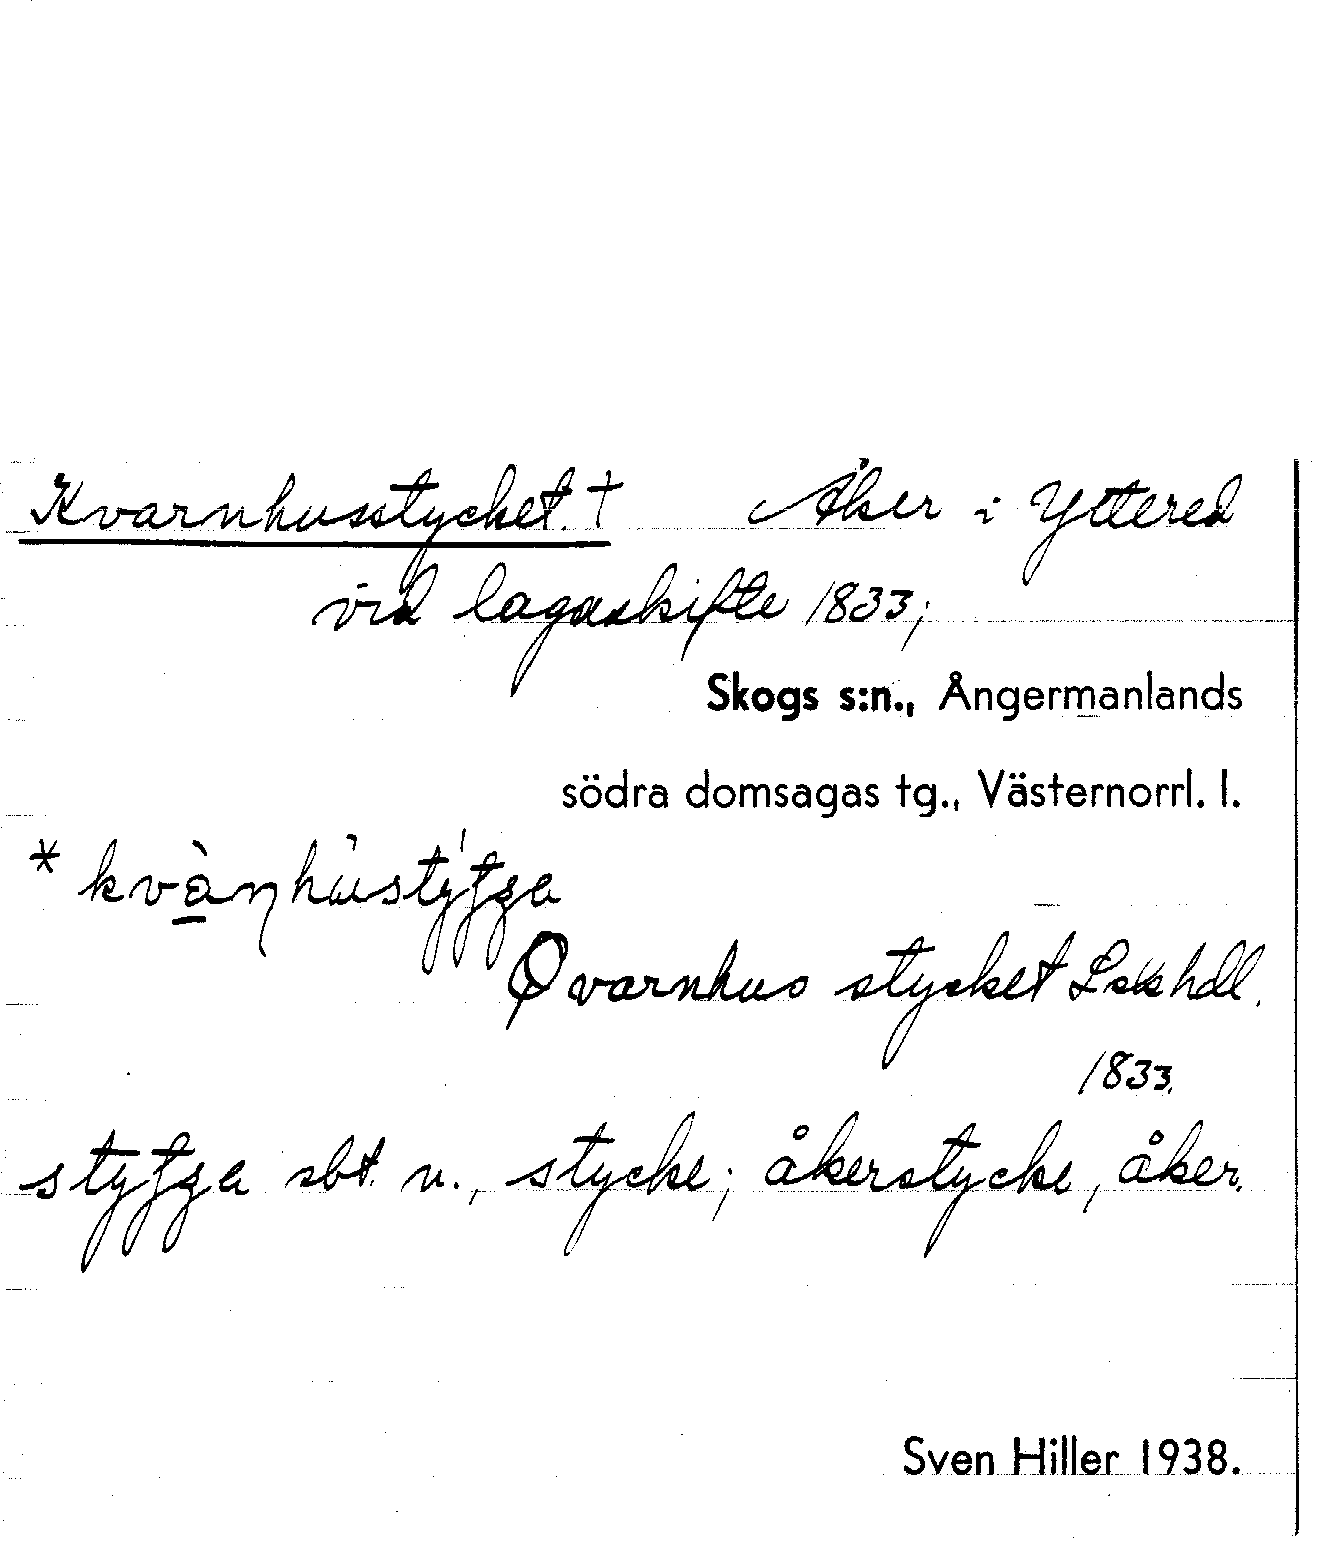 Kvarnhusstycket. † Åker i Yttered
vid lagaskifte 1833;
Skogs s:n., Ångermanlands
södra domsagas tg., Västernorrl. l.
Qvarnhus stycket Lskhdl.
1833.
sbt. n., stycke; åkerstycke, åker.
Sven Hiller 1938.